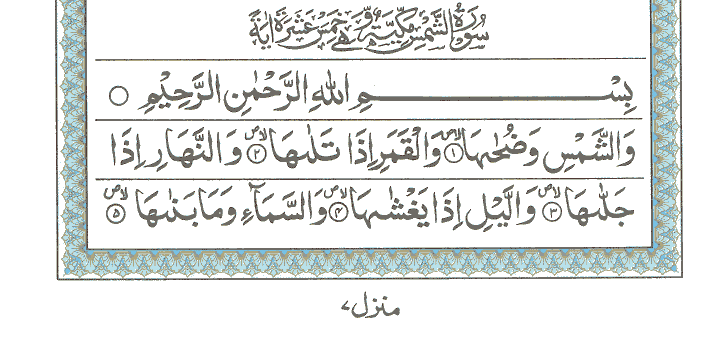 سُوْرَةُ الشَّمْسِ مَكِّيَّةٌ وَّهِيَ خَمْسَ عَشَرَةَ اٰيَةً
بِسْمِ اللهِ الرَّحْمٰنِ الرَّحِيْمِ ○
وَالشَّمْسِ وَضُحٰىهَا ۙ﴿۱﴾ وَالْقَمَرِ اِذَا تَلٰىهَا ۙ﴿۲﴾ وَالنَّهَارِ اِذَا
جَلّٰىهَا ۙ﴿۳﴾ وَالَّيْلِ اِذَا يَغْشٰىهَا ۙ﴿۴﴾ وَالسَّمَآءِ وَمَا بَنٰىهَا ۙ﴿۵﴾
منزل۷